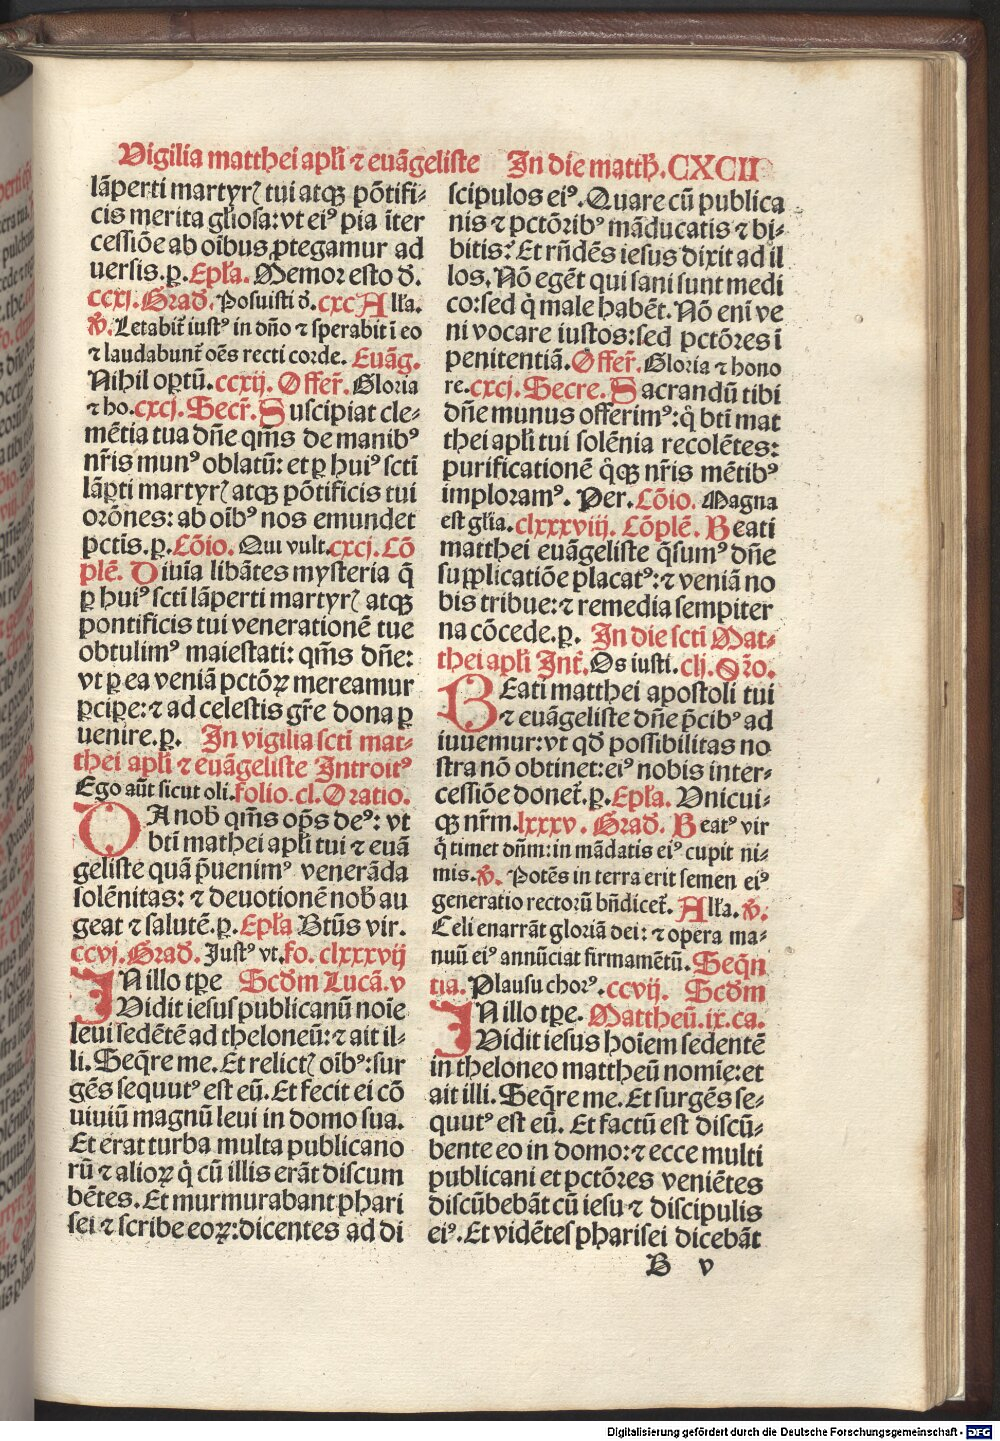 Vigilia matthei apl̄i ⁊ euāgeliste In die matth̄. CXCII
lāperti martyrꝭ tui atqꝫ pōtifi⸗
cis merita gl̄iosa: vt eiꝰ pia īter
cessiōe ab oībus ꝓtegamur ad
uersis. p̲. Epl̄a. Memor esto d̄.
ccxj. Grad̄. Posuisti d̄. cxc All̄a.
℣. Letabit᷑ iustꝰ in dn̄o ⁊ sperabit ī eo
⁊ laudabunt᷑ oēs recti corde. Euāg.
Nihil op̲tū. ccxij. Offer᷑. Gloria
⁊ ho. cxcj. Secr᷑. Suscipiat cle⸗
mētia tua dn̄e qm̄s de manibꝰ
nr̄is munꝰ oblatū: et p̲ huiꝰ scti
lāp̲ti martyrꝭ atqꝫ pōtificis tui
orōnes: ab oībꝰ nos emundet
pctīs. p̲. Cōio. Qui vult. cxcj. Cō
plē. Diuīa libātes mysteria q̄
p̲ huiꝰ scti lāp̲erti martyrꝭ atqꝫ
pontificis tui venerationē tue
obtulimꝰ maiestati: qm̄s dn̄e:
vt p̲ ea veniā pctōꝝ mereamur
p̲cipe: ⁊ ad celestis gr̄e dona p̲
uenire. p̲. In vigilia scti mat⸗
thei apl̄i ⁊ euāgeliste Introitꝰ
Ego aūt sicut oli. folio. cl. Oratio.
DA nob̄ qm̄s op̄s deꝰ: vt
bti mathei apl̄i tui ⁊ euā
geliste quā p̄uenimꝰ venerāda
solēnitas: ⁊ deuotionē nob̄ au
geat ⁊ salutē. p̲. Epl̄a Btūs vir.
ccvj. Grad̄. Justꝰ vt. fo. clxxxvij
IN illo tp̄e Scdm̄ Lucā. v
Vidit iesus publicanū noīe
leui sedētē ad theloneū: ⁊ ait il⸗
li. Seq̄re me. Et relictꝭ oībꝰ: sur
gēs sequutꝰ est eū. Et fecit ei cō
uiuiū magnū leui in domo sua.
Et erat turba multa publicano
rū ⁊ alioꝝ q̄ cū illis erāt discum
bētes. Et murmurabant phari
sei ⁊ scribe eoꝝ: dicentes ad di
scipulos eiꝰ. Quare cū publica
nis ⁊ pctōribꝰ māducatis ⁊ bi⸗
bitis? Et rn̄dēs iesus dixit ad il
los. Nō egēt qui sani sunt medi
co: sed q̄ male habēt. Nō enī ve
ni vocare iustos: sed pctōres ī
penitentiā. Offer᷑. Gloria ⁊ hono
re. cxcj. Secre. Sacrandū tibi
dn̄e munus offerimꝰ: q̄ bti mat
thei apl̄i tui solēnia recolētes:
purificationē q̄qꝫ nr̄is mētibꝰ
imploramꝰ. Per. Cōio. Magna
est gl̄ia. clxxxviij. Cōplē. Beati
matthei euāgeliste q̄sumꝰ dn̄e
supplicatiōe placatꝰ: ⁊ veniā no
bis tribue: ⁊ remedia sempiter
na cōcede. p̲. In die scti Mat⸗
thei apl̄i Int᷑. Os iusti. clj. Oro.
BEati matthei apostoli tui
⁊ euāgeliste dn̄e p̄cibꝰ ad
iuuemur: vt qd̄ possibilitas no
stra nō obtinet: eiꝰ nobis inter⸗
cessiōe donet᷑. p̲. Epl̄a. Vnicui⸗
qꝫ nr̄m. lxxxv. Grad̄. Beatꝰ vir
q̄ timet dn̄m: in mādatis eiꝰ cupit ni⸗
mis. ℣. Potēs in terra erit semen eiꝰ
generatio rectorū bn̄dicet᷑. All̄a. ℣.
Celi enarrāt gloriā dei: ⁊ opera ma⸗
nuū eiꝰ annūciat firmamētū. Seq̄n
tia. Plausu chorꝰ. ccvij. Scdm̄
IN illo tp̄e. Mattheū. ix. ca.
Vidit iesus hoīem sedentē
in theloneo mattheū nomīe: et
ait illi. Seq̄re me. Et surgēs se⸗
quutꝰ est eū. Et factū est discū⸗
bente eo in domo: ⁊ ecce multi
publicani et pctōres veniētes
discūbebāt cū iesu ⁊ discipulis
eiꝰ. Et vidētes pharisei dicebāt
B v
Digitalisierung gefördert durch die Deutsche Forschungsgemeinschaft - DFG